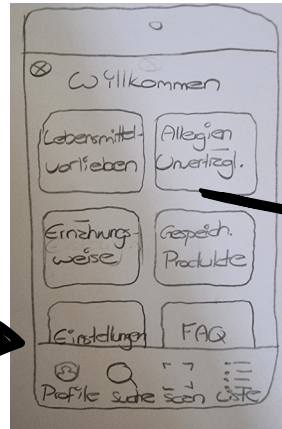 Willkommen
Lebensmittel-
vorlieben
Allergien
Unverträgl.
Ernährungs-
weise
Gespeich.
Produkte
Einstellungen
FAQ
Profile
Suche
Scan
Liste